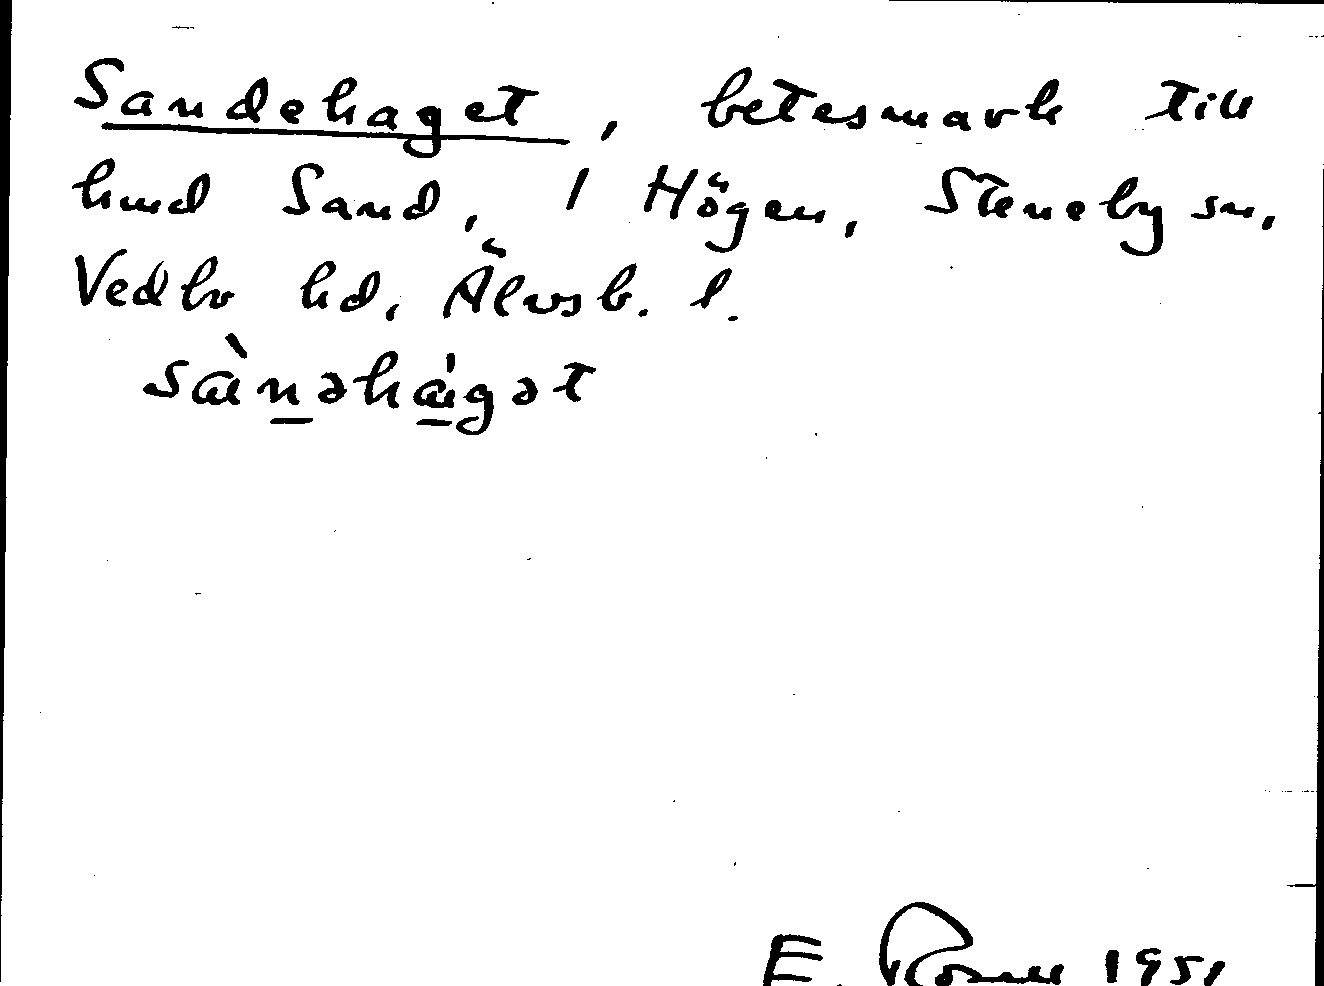 Sandehaget, betesmark till
hmd Sand, 1 Högen, Steneby sn,
Vedbo hd, Älvsb. l.
sànəhágət
E. 1951